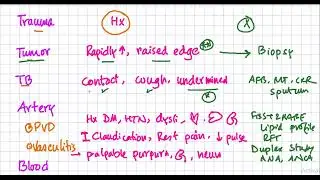 Trauma Hx
Tumor Rapidly ↑, raised edge → Biopsy
TB Contact, cough, undermined AFB, MT, CXR
sputum
Artery Hx DM, HTN, dysli
PVD I Claudication, Rest pain, ↓ pulse Lipid profile
RFT
Vasculitis → palpable purpura, neuro Duplex study
ANA, ANCA
Blood